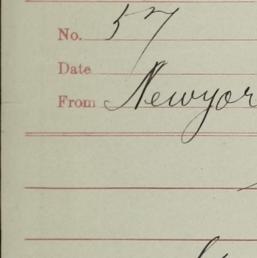 No. 57
Date
From Newyor